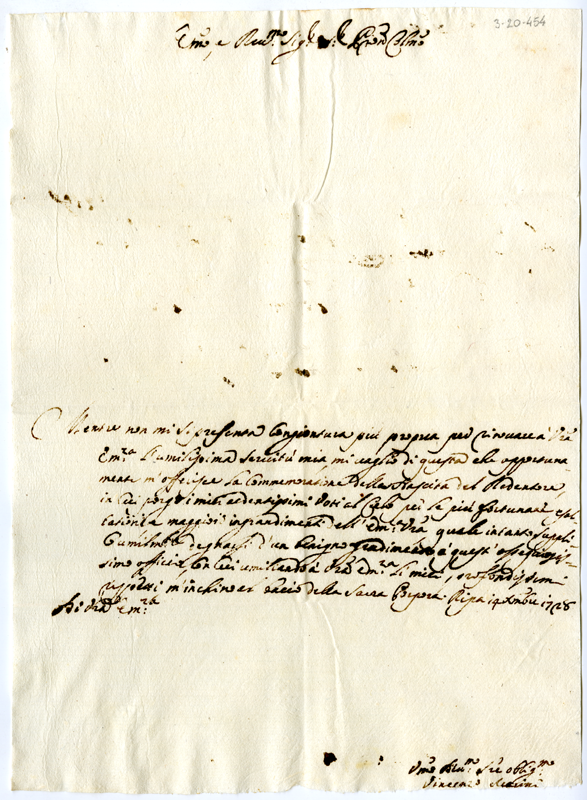 3-20-454
Emo, e Reu.mo Sig.r Sig.r Pron Colmo
Mentre non mi si presenta Congiontura piú propria per rinouare à Vrã
Em.za l'umilissima seruitù mia, mi uaglio di questa che opportuna-
mente m'offerisce la Commemoratione della Nascita del Redentore,
in cui porgo i miei ardentissimi Voti al Cielo per le piú fortunate esal-
tationi e maggiori ingrandimenti dell' Em.za Vrã, quale intanto supoli
umilmte degnarsi d'un benigno gradimento à questi ossequiosis-
simo officij, Con cui umiliando à Vrã Em.za li miei profondissimi
rispetti m'inchino al bacio della Sacra Porpora. Ripa 14 Xmbre 1728
Di Vrã Em.za
Vmo Diu.mo Sre oblig.mo
Vincenzo